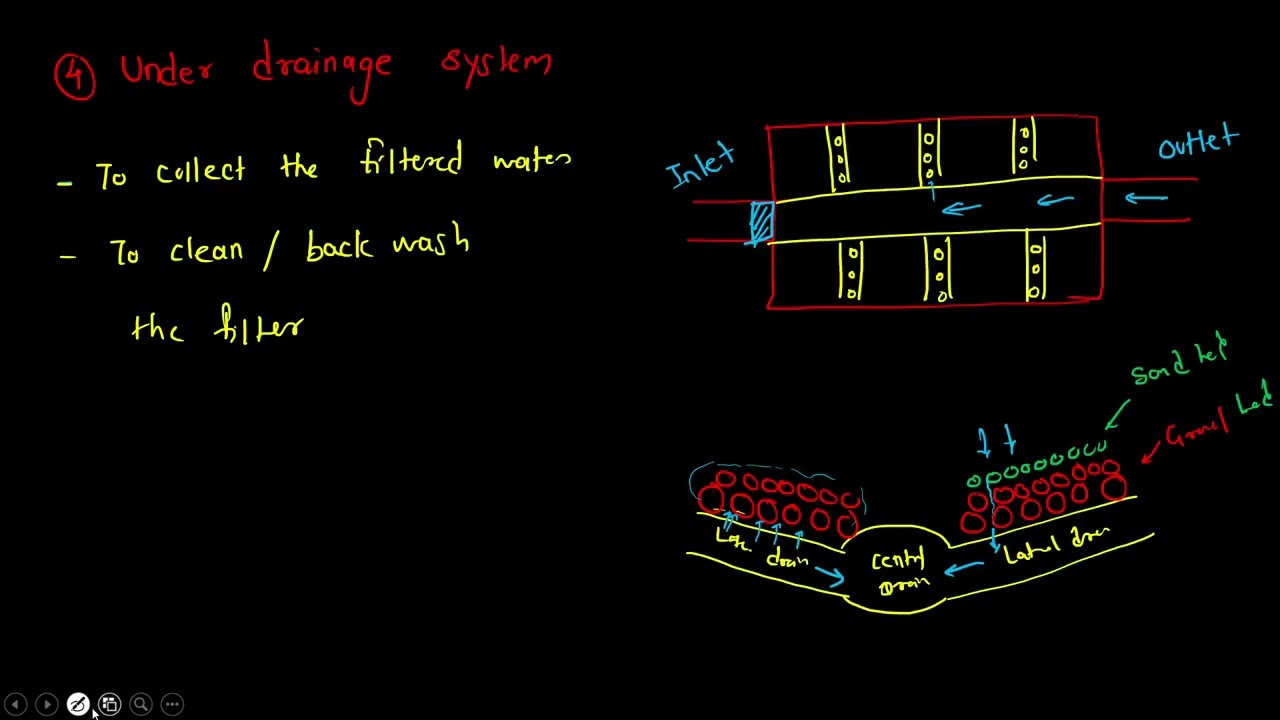 ④ Under drainage system
- To collect the filtered water
- To clean / back wash
the filter
Inlet
Outlet
Sand bed
Gravel bed
Lat. drain
Central
Drain
Lateral drain